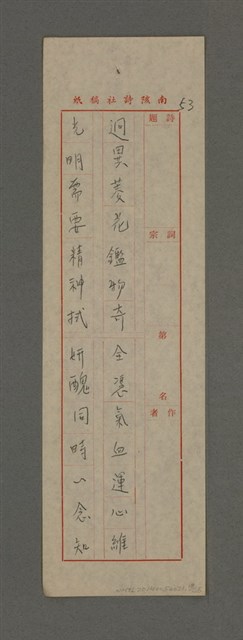 南陔詩社稿紙
53
詩題
詞宗
舘
作者名
迥異菱花鑑物奇全憑氣血運心維
光明需要精神拭妍醜同時一念知